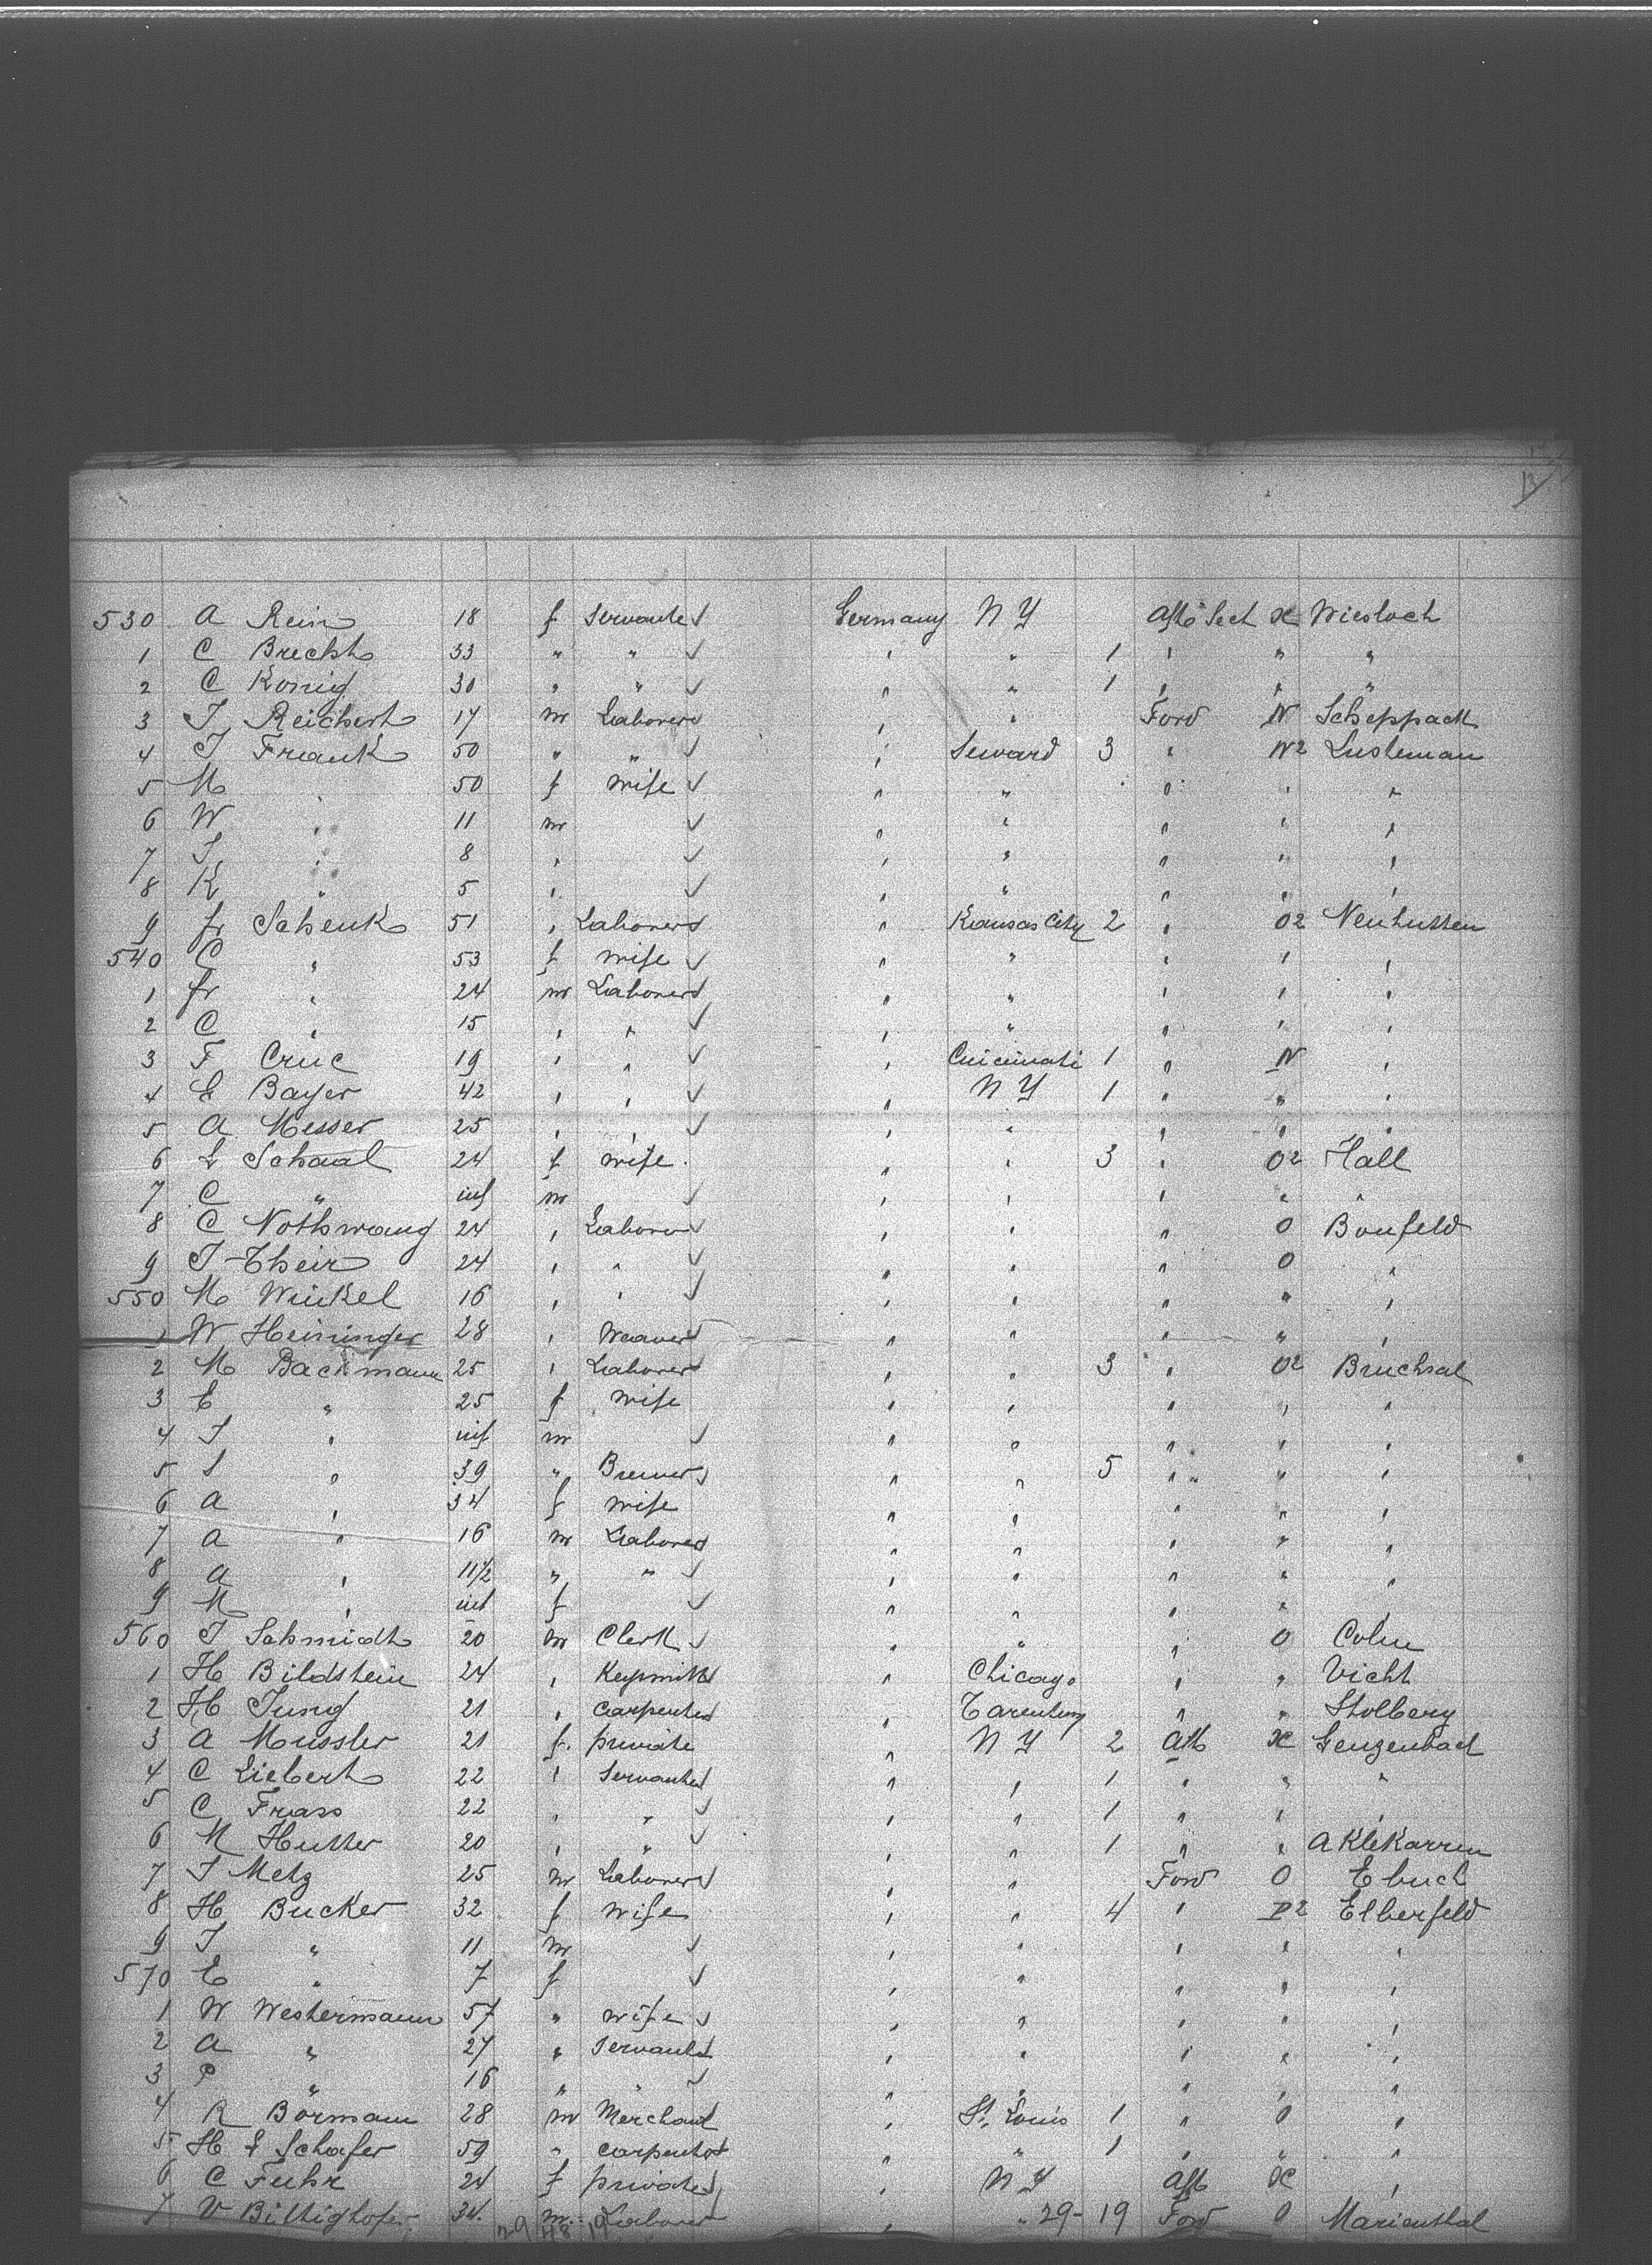 13
530 A Rein 18 f Servant Germany N Y Aft Sect K Wiesloch
1 C Brecht 33 " " " " 1 " " "
2 C Konig 30 " " " " 1 " " "
3 J Reichert 17 m Laborer " " Forw N Scheppach
4 J Frank 50 " " " Seward 3 " N2
5 M " 50 f wife " " " " "
6 W " 11 m " " " " "
7 J " 8 " " " " " "
8 K " 5 " " " " " "
9 Fr Schenk 51 " Laborer " Kansas City 2 " O2 Neuhutten
540 C " 53 f wife " " " " "
1 Fr " 24 m Laborer " " " " "
2 C " 15 " " " " " " "
3 F Cruc 19 " " " Cincinnati 1 " N "
4 E Bayer 42 " " " N Y 1 " " "
5 A Messer 25 " " " " " " "
6 L Schaal 24 f wife " " 3 " O2 Hall
7 C " inf m " " " " "
8 C Nothwang 24 " Laborer " " " O Bonfeld
9 J Their 24 " " " " " O "
550 M Winkel 16 " " " " " " "
1 W Heininger 28 " Weaver " " " " "
2 M Backmann 25 " Laborer " " 3 " O2 Bruchsal
3 E " 25 f wife " " " " "
4 J " inf m " " " " "
5 S " 39 " Brewer " " 5 " " "
6 A " 34 f wife " " " " "
7 A " 16 m Laborer " " " " "
8 A " 11 1/2 " " " " " " "
9 M " inf f " " " " "
560 J Schmidt 20 m Clerk " " " O Coln
1 H Bildstein 24 " Keysmith " Chicago " " Vicht
2 H Jung 21 " Carpenter " Tarentum " " Stolberg
3 A Mussler 21 f. private " N Y 2 Aft K Genzenbach
4 C Liebert 22 " Servant " " 1 " " "
5 C Frass 22 " " " " 1 " " "
6 M Hutter 20 " " " " 1 " "
7 J Metz 25 m Laborer " " Forw O Ebuch
8 H Bucker 32 f wife " " 4 " P2 Elberfeld
9 J " 11 m " " " " "
570 E " 7 f " " " " "
1 W Westermann 57 " wife " " " " "
2 A " 27 " Servant " " " " "
3 P " 16 " " " " " " "
4 R Bormann 28 m Merchant " St. Louis 1 " O "
5 H L Schafer 59 " Carpenter " " 1 " " "
6 C Fuhr 24 f private " N Y Aft K "
7 V Billighofer 34. m. Laborer " " 29-19 Forw O Marienthal
29 48 19